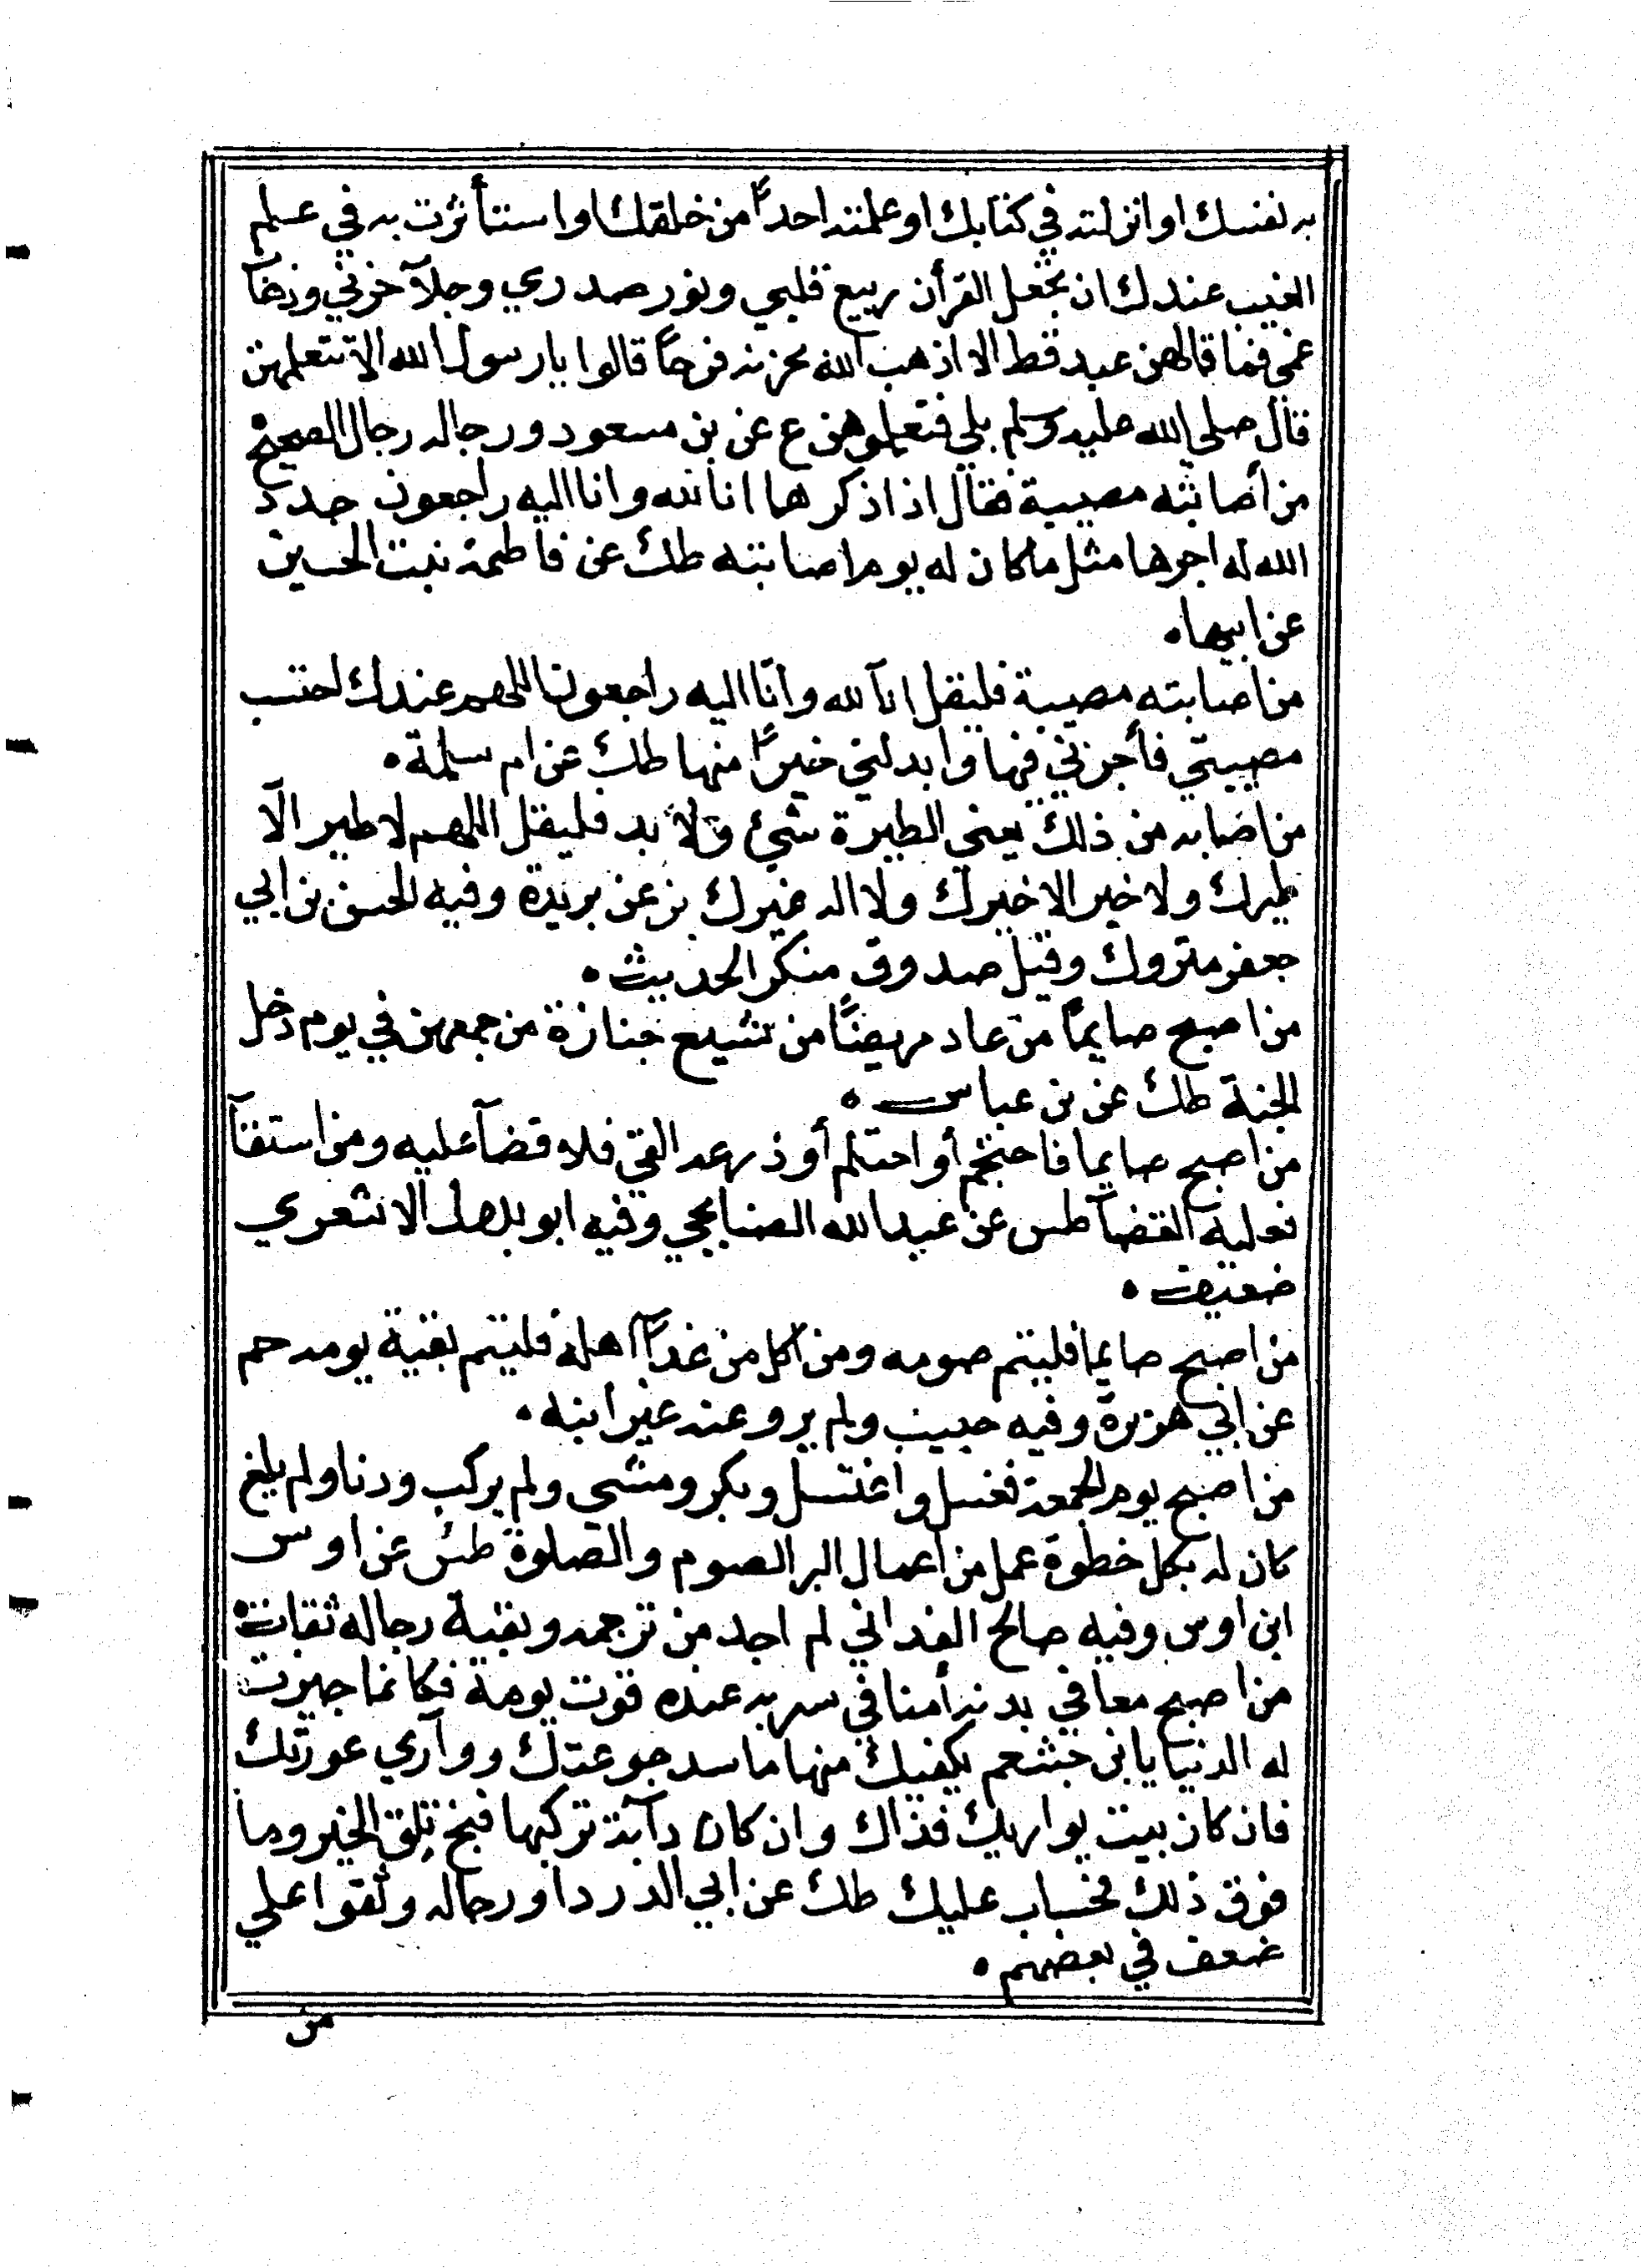 به نفسك او انزلته في كتابك او علمته احداً من خلقك او استأثرت به في علم
الغيب عندك ان تجعل القرأن ربيع قلبي ونور صدري وجلآ حزني وذهآ
غمي فما قالهن عبد قط الا اذهب الله بحزنه فرحاً قالوا يا رسول الله الا نتعلمهن
قال صلي الله عليه وسلم بلي فتعلموهن ع عن بن مسعود ورجاله رجال الصحيح
من أصابته مصيبة فقال اذا ذكرها انا لله وانا اليه راجعون جدد
الله له اجرها مثل ما كان له يوم اصابته طك عن فاطمة بنت الحسين
عن ابيها ه
من اصابته مصيبة فليقل انآ لله وانّا اليه راجعون اللهم عندك احتسب
مصيبتي فأجرني فيها وابدلني خيراً منها طك عن ام سلمة ه
من اصابه من ذلك يعني الطيرة شيئ ولا بد فليقل اللهم لا طير الّا
طيرك ولا خير الا خيرك ولا اله غيرك بز عن بريدة وفيه الحسن بن ابي
جعفر متروك وقيل صدوق منكر الحديث ه
من اصبح صايماً من عاد مريضاً من تشيع جنازة من جمعهن في يوم دخل
الجنة طك عن بن عباس ه
من اصبح صايما فاحتجم أو احتلم أو ذرعه القئ فلا قضآ عليه ومن استقآ
فعليه القضآ طس عن عبد الله الصنابحي وفيه ابو بلال الاشعري
ضعيف ه
من اصبح صايما فليتم صومه ومن اكل من غدآ اهله فليتم بقية يومه حم
عن ابي هريرة وفيه حبيب ولم يرو عنه غير ابنه ه
من اصبح يوم الجمعة فغسل واغتسل وبكر ومشي ولم يركب ودنا ولم يلغ
كان له بكل خطوة عمل من اعمال البر الصوم والصلوة طس عن اوس
ابن اوس وفيه صالح الغداني لم احد من ترجمه وبقية رجاله ثقات ه
من اصبح معافي بدنه أمنا في سربه عنده قوت يومه فكانما حيزت
له الدنيا يا ابن جشعم يكفيك منها ما سد جوعتك ووآري عورتك
فان كان بيت يواريك فذاك وان كان دآبة تركبها فبخ فلق الخير وما
فوق ذلك فحساب عليك طك عن ابي الدردا ورجاله وثقوا علي
ضعف في بعضهم ه
من